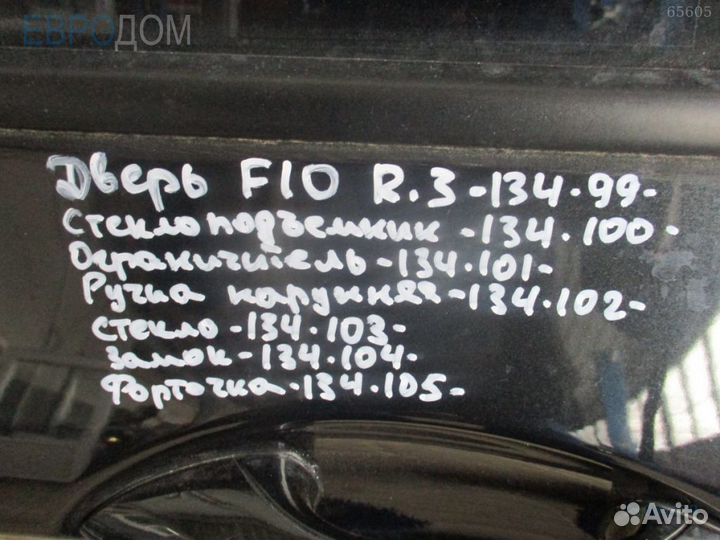 65605
ЕВРОДОМ
Дверь F10 R.3-134.99-
Стеклоподъемник-134.100-
Ограничитель-134.101-
Ручка наружняя-134.102-
стекло-134.103-
замок-134.104-
Форточка-134.105-
Avito